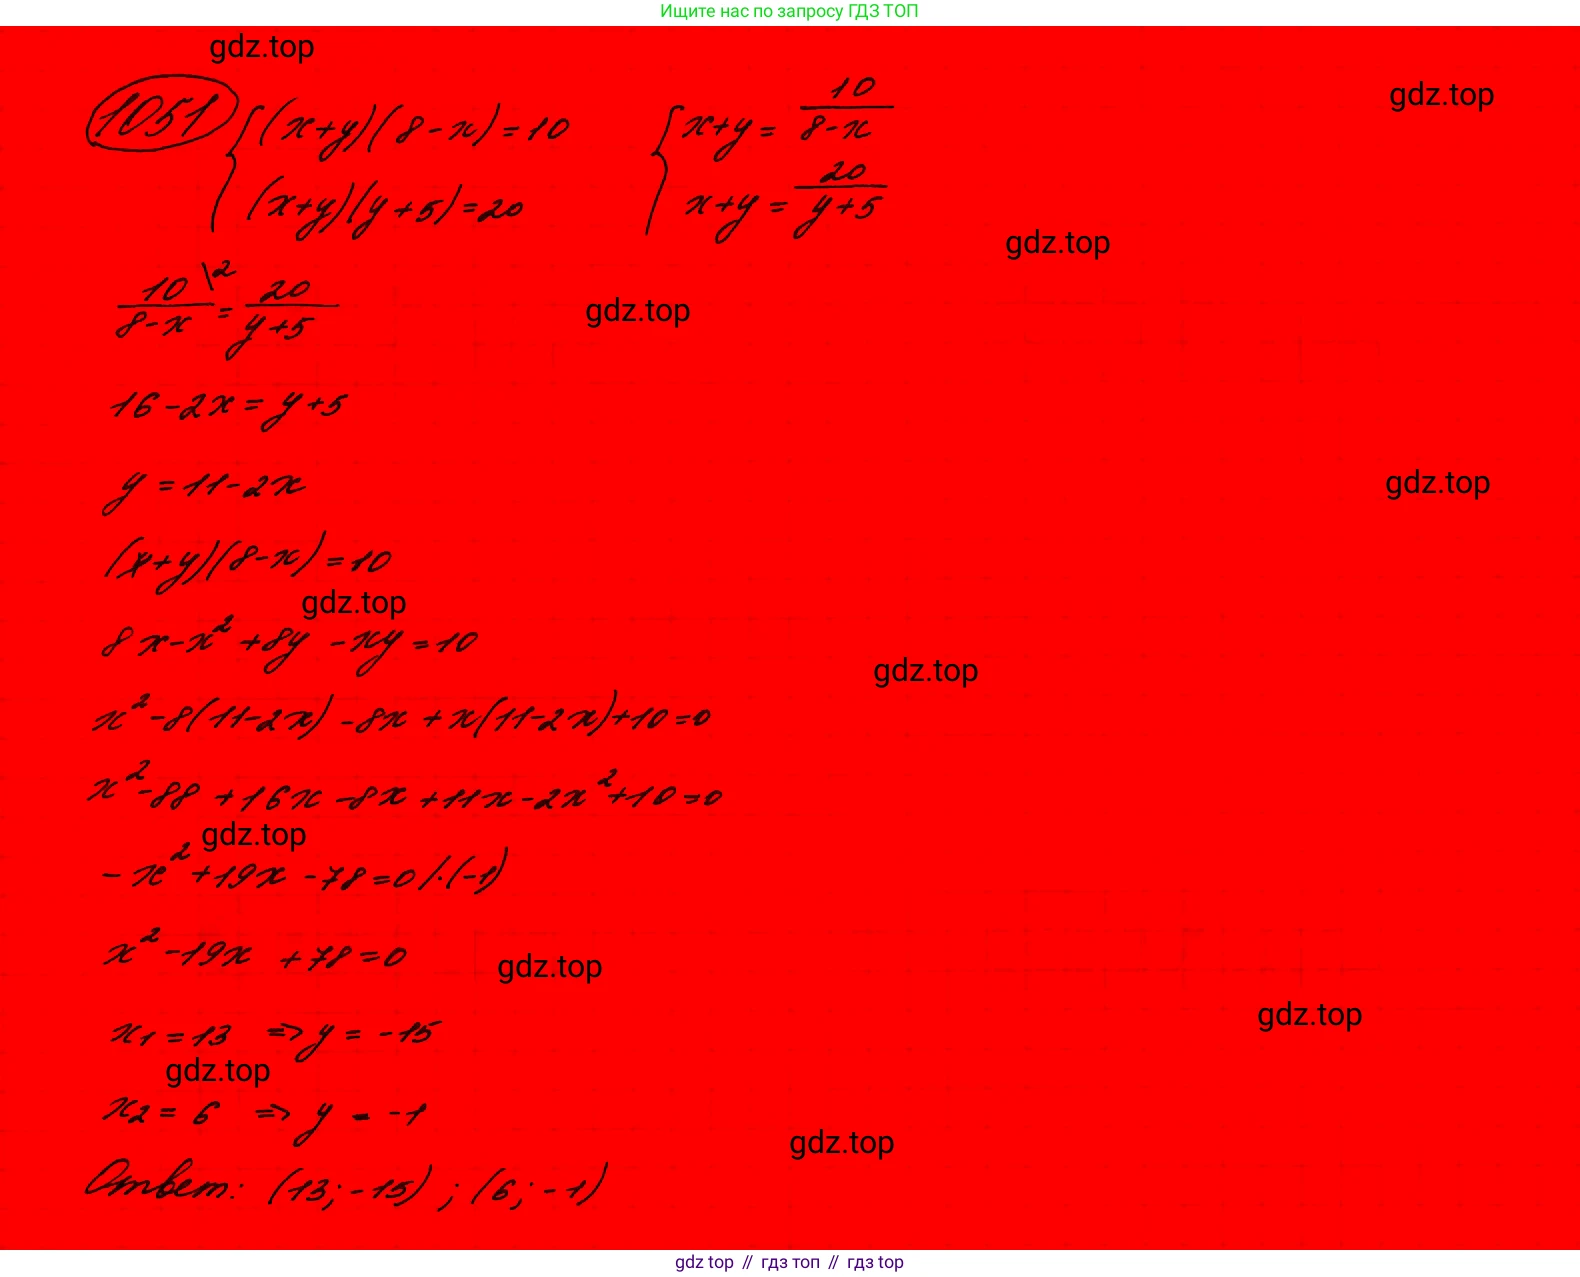 Ищите нас по запросу ГДЗ ТОП
gdz.top
1051 {(x+y)(8-x)=10 {x+y=10/(8-x)
(x+y)(y+5)=20 x+y=20/(y+5)
gdz.top
gdz.top
10/(8-x) \2 = 20/(y+5)
gdz.top
16-2x=y+5
y=11-2x
gdz.top
(x+y)(8-x)=10
gdz.top
8x-x²+8y-xy=10
gdz.top
x²-8(11-2x)-8x+x(11-2x)+10=0
x²-88+16x-8x+11x-2x²+10=0
gdz.top
-x²+19x-78=0 /·(-1)
x²-19x+78=0
gdz.top
gdz.top
x₁=13 => y=-15
gdz.top
x₂=6 => y=-1
gdz.top
Ответ: (13;-15); (6;-1)
gdz top // гдз топ // гдз top